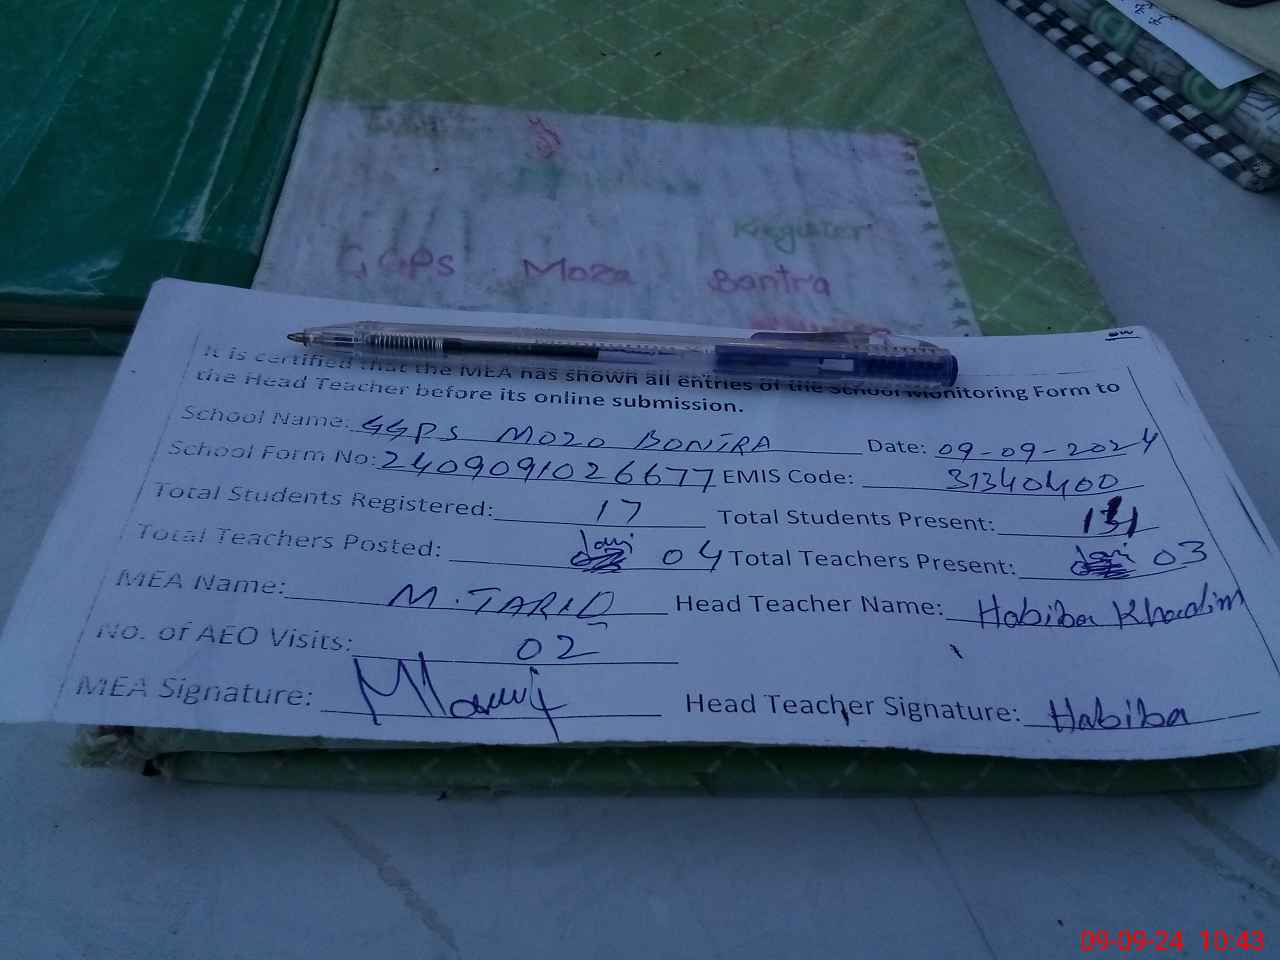 Register
GGPS Moza Bantra
It is certified that the MEA has shown all entries of the School Monitoring Form to
the Head Teacher before its online submission.
School Name: GGPS MOZO BONTRA Date: 09-09-2024
School Form No: 2409091026677 EMIS Code: 31340400
Total Students Registered: 17 Total Students Present:
Total Teachers Posted: 04 Total Teachers Present: 03
MEA Name: M. TARIQ Head Teacher Name: Habiba Khadim
No. of AEO Visits: 02
MEA Signature: Head Teacher Signature: Habiba
09-09-24 10:43